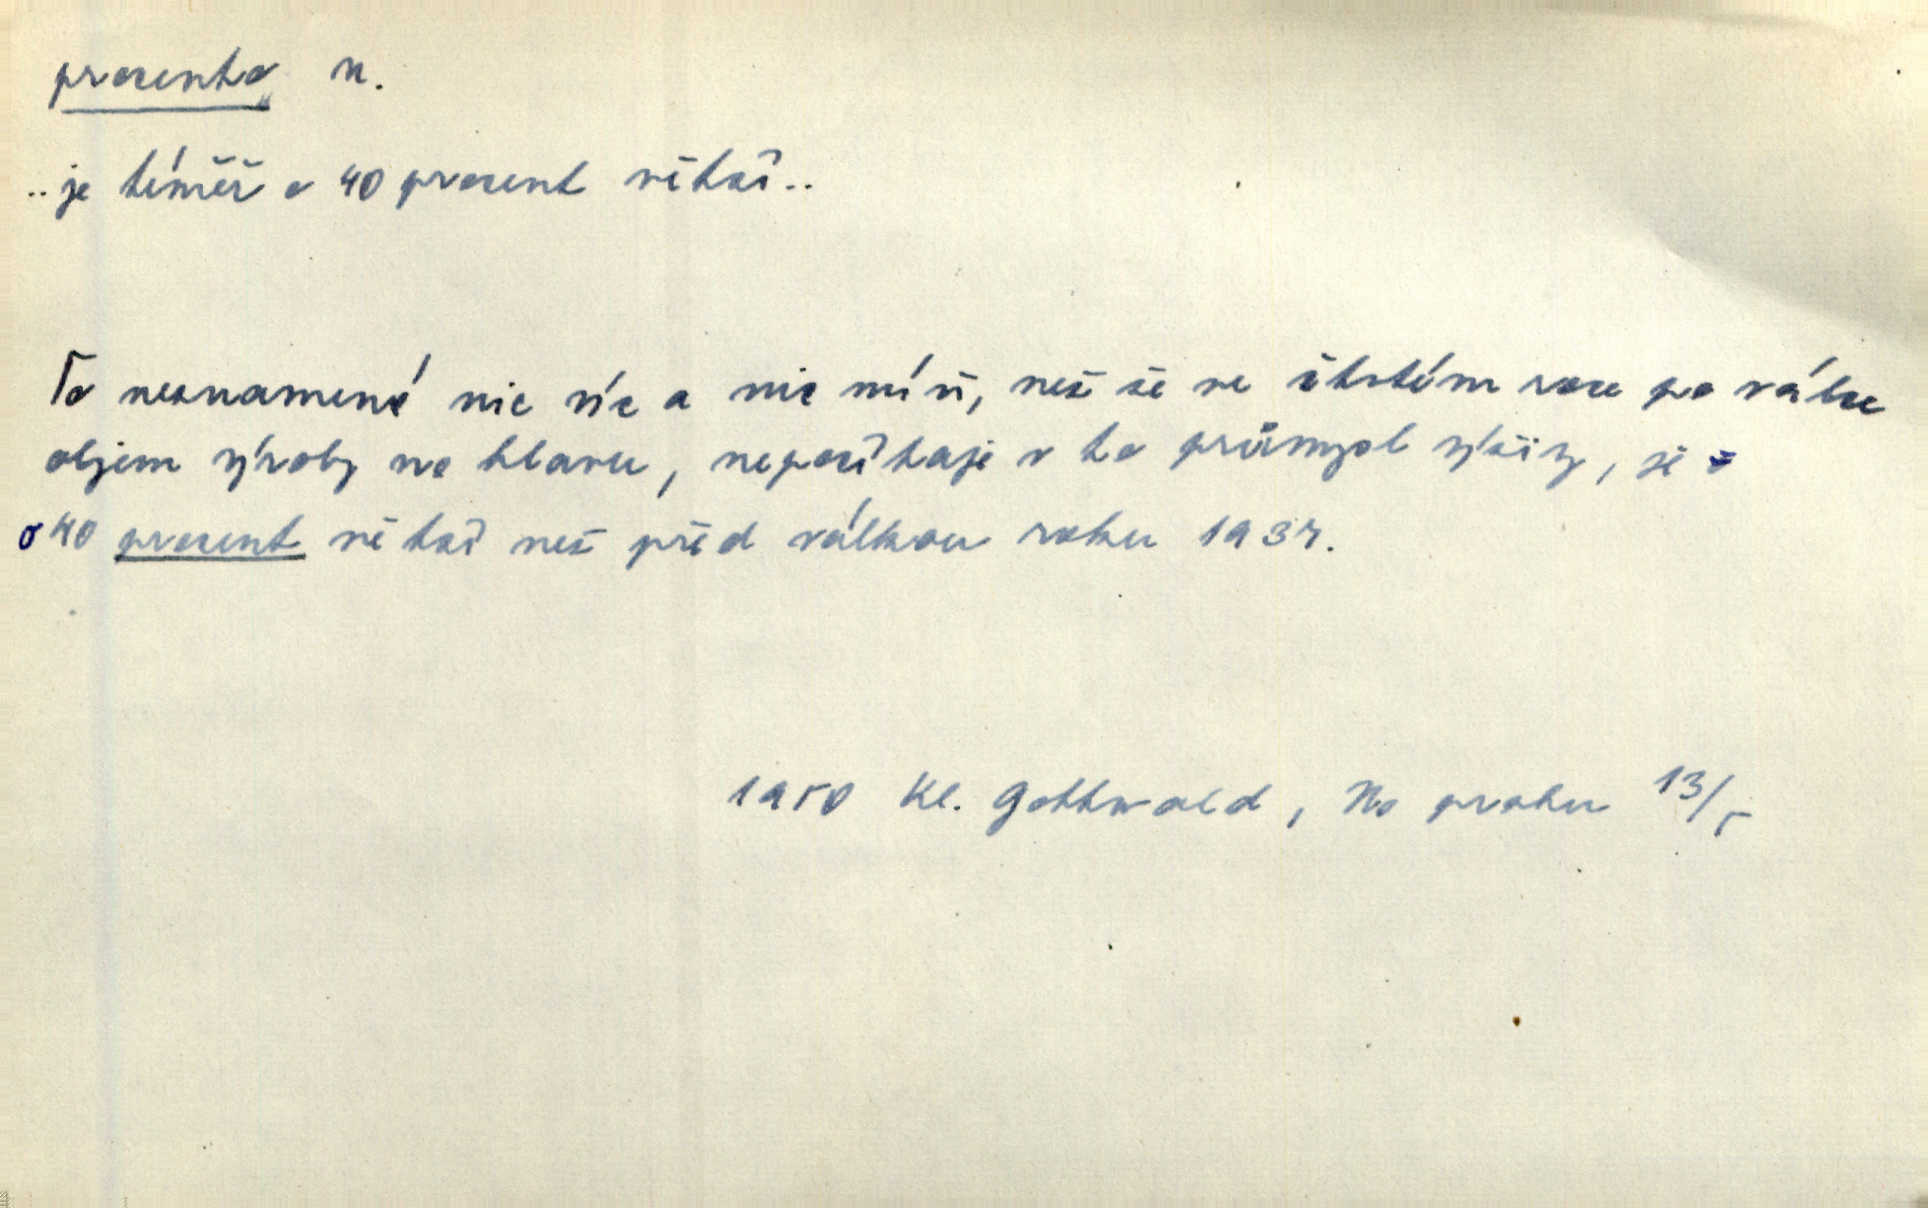 procento n.
.. je téměř o 40 procent větší ..
To neznamená nic víc a nic míň, než že ve čtvrtém roce po válce
objem výroby na hlavu, nepočítaje v to průmysl výživy, je
o 40 procent větší než před válkou roku 1937.
1950 Kl. Gottwald, Na prahu 13/5